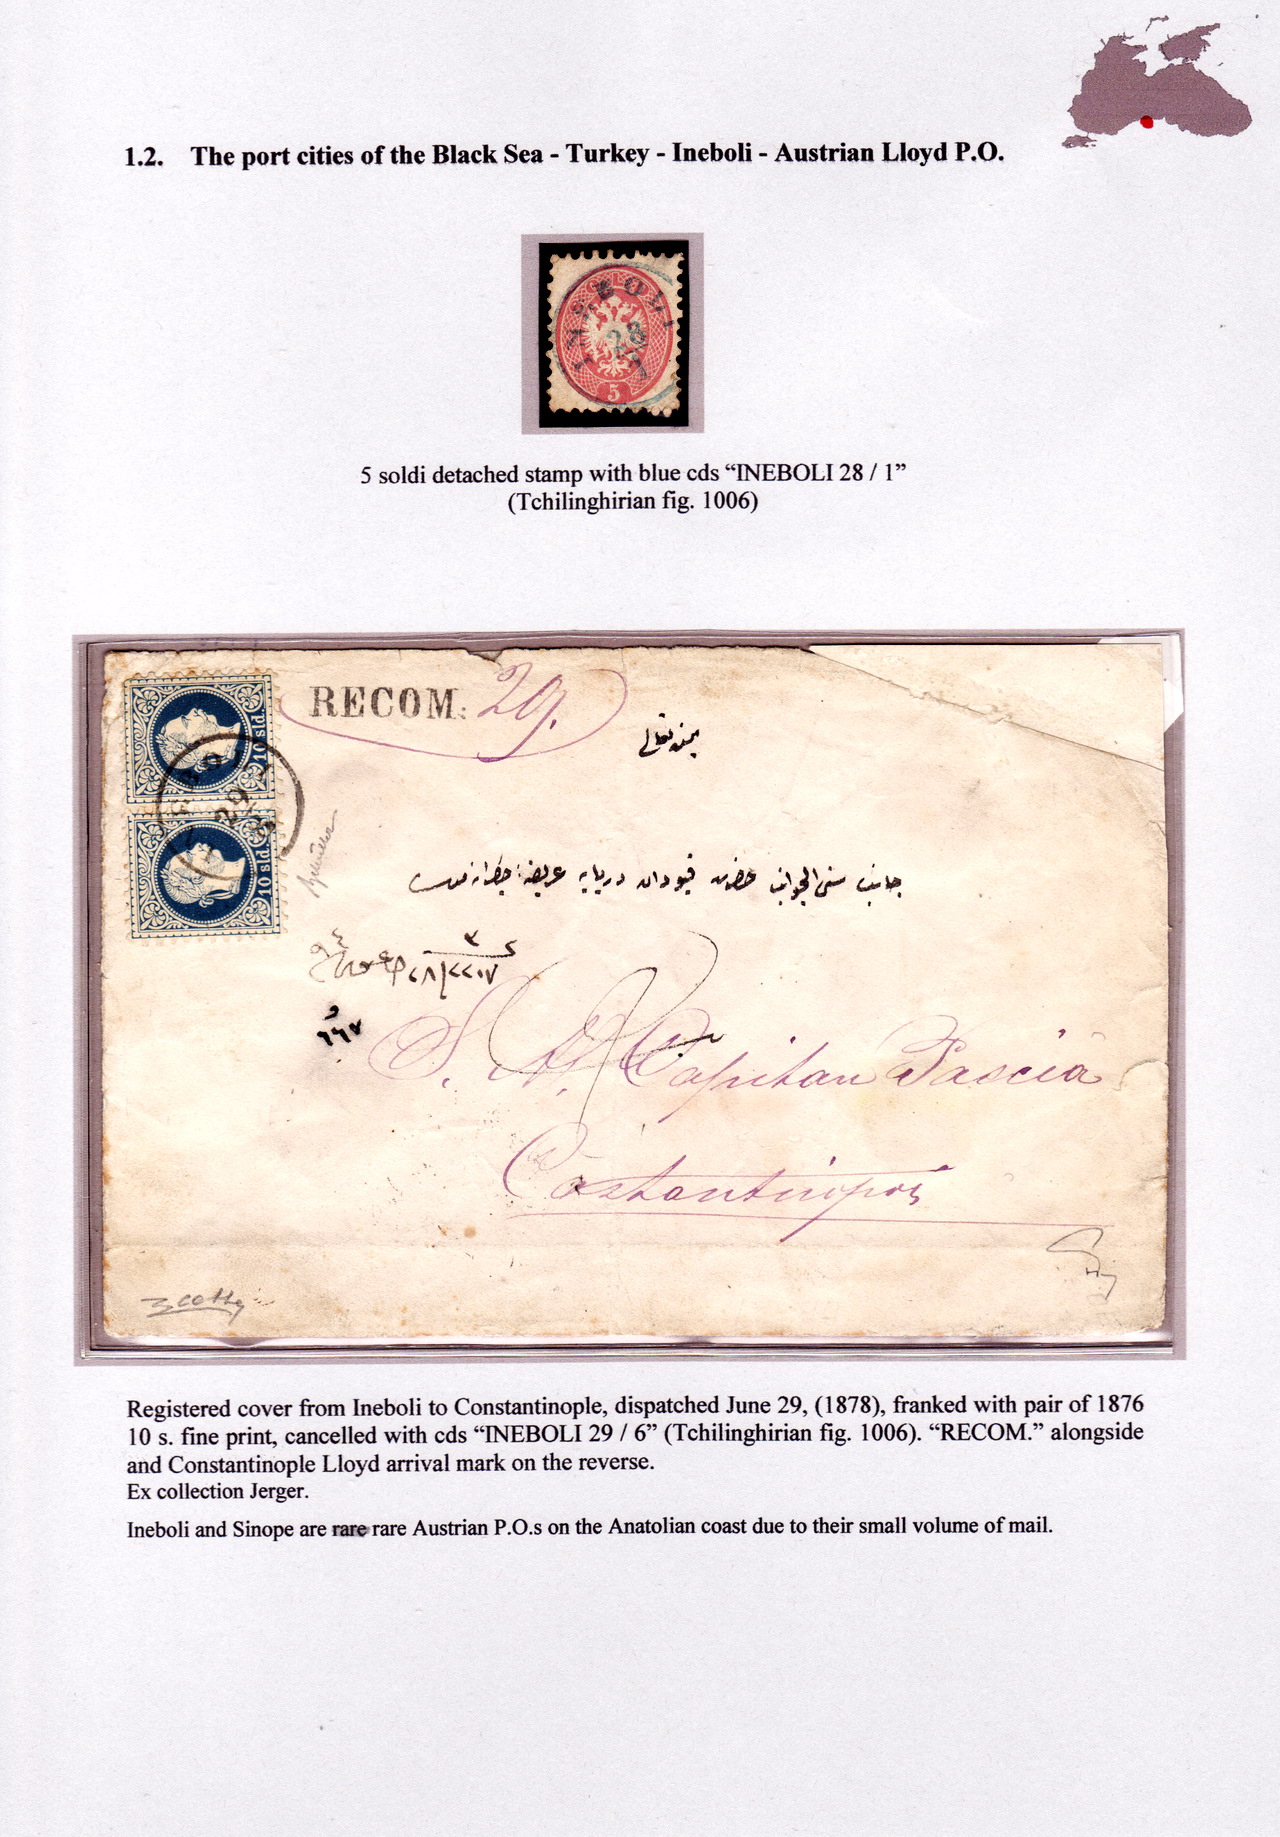 1.2. The port cities of the Black Sea - Turkey - Ineboli - Austrian Lloyd P.O.
INEBOLI
28
1
5
5 soldi detached stamp with blue cds “INEBOLI 28 / 1”
(Tchilinghirian fig. 1006)
RECOM. 29.
10 sld.
29
6
10 sld.
جانب سنی الجوانب حضرت قپودان
S. A. Capitan Pascià
Costantinopoli
Registered cover from Ineboli to Constantinople, dispatched June 29, (1878), franked with pair of 1876
10 s. fine print, cancelled with cds “INEBOLI 29 / 6” (Tchilinghirian fig. 1006). “RECOM.” alongside
and Constantinople Lloyd arrival mark on the reverse.
Ex collection Jerger.
Ineboli and Sinope are rare rare Austrian P.O.s on the Anatolian coast due to their small volume of mail.